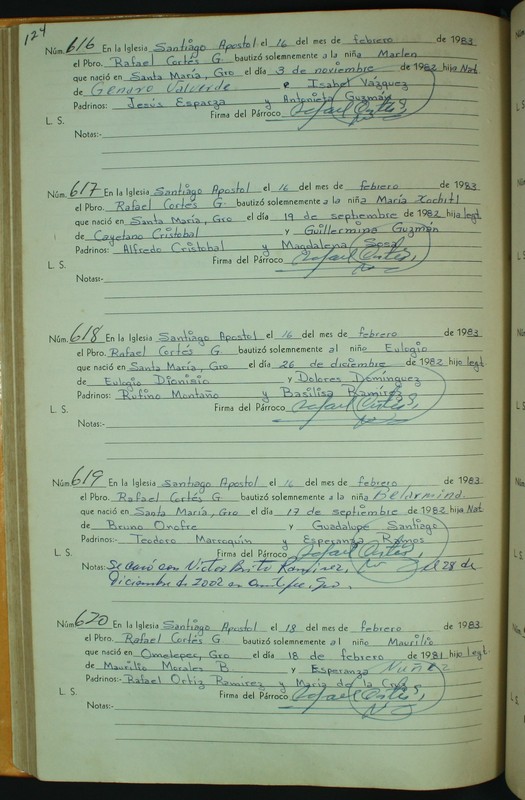 124
Núm. 616 En la Iglesia Santiago Apostol el 16 del mes de febrero de 1983
el Pbro. Rafael Cortés G bautizó solemnemente a la niña Marlen
que nació en Santa María, Gro el día 3 de noviembre de 1982 hija Nat.
de Genaro Valverde e Isabel Vázquez
Padrinos: Jesús Esparza y Antonieta Guzmán
L. S. Firma del Párroco Rafael Cortés,
Notas:-
Núm. 617 En la Iglesia Santiago Apostol el 16 del mes de febrero de 1983
el Pbro. Rafael Cortés G. bautizó solemnemente a la niña María Xochitl
que nació en Santa María, Gro el día 19 de septiembre de 1982 hija legt.
de Cayetano Cristobal y Guillermina Guzmán
Padrinos: Alfredo Cristobal y Magdalena Sosa
L. S. Firma del Párroco Rafael Cortés,
Notas:-
Núm. 618 En la Iglesia Santiago Apostol el 16 del mes de febrero de 1983
el Pbro. Rafael Cortés G bautizó solemnemente al niño Eulogio
que nació en Santa María, Gro el día 26 de diciembre de 1982 hijo legt.
de Eulogio Dionisio y Dolores Domínguez
Padrinos: Rufino Montaño y Basilisa Ramírez
L. S. Firma del Párroco Rafael Cortés,
Notas:-
Núm. 619 En la Iglesia Santiago Apostol el 16 del mes de febrero de 1983
el Pbro. Rafael Cortés G bautizó solemnemente a la niña Belarmina.
que nació en Santa María, Gro el día 17 de septiembre de 1982 hija Nat.
de Bruno Onofre y Guadalupe Santiago
Padrinos:- Teodoro Marroquín y Esperanza Ramos
L. S. Firma del Párroco Rafael Cortés,
Notas: Se casó con Victor Brito Ramírez, el 28 de
Diciembre de 2002 en Gro.
Núm. 620 En la Iglesia Santiago Apostol el 18 del mes de febrero de 1983
el Pbro. Rafael Cortés G bautizó solemnemente al niño Maurilio
que nació en Ometepec, Gro el día 18 de febrero de 1981 hijo legt.
de Maurilio Morales B y Esperanza Nuñez
Padrinos:- Rafael Ortiz Ramírez y María de la Cruz
L. S. Firma del Párroco Rafael Cortés,
Notas:-